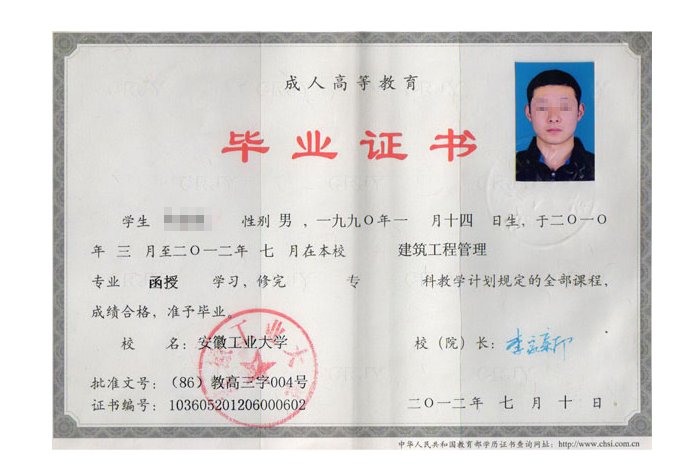 成人高等教育
毕业证书
学生 性别 男 ，一九九〇年一 月十四 日生，于二〇一〇
年 三 月至二〇一二年 七 月在本校 建筑工程管理
专业 函授 学习，修完 专 科教学计划规定的全部课程，
成绩合格，准予毕业。
校 名：安徽工业大学 校（院）长：
批准文号：（86）教高三字004号
证书编号：103605201206000602 二〇一二年 七 月 十 日
中华人民共和国教育部学历证书查询网址：http://www.chsi.com.cn